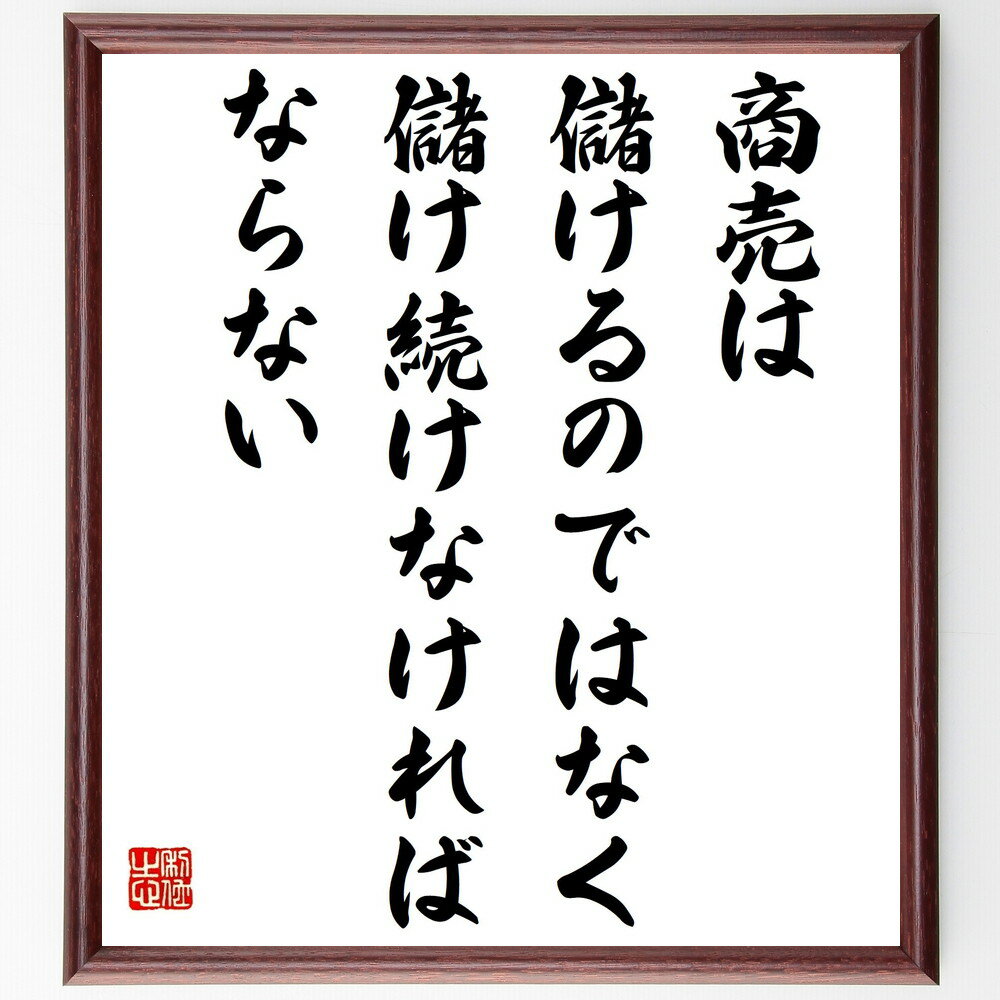 商売は
儲けるのではなく
儲け続けなければ
ならない